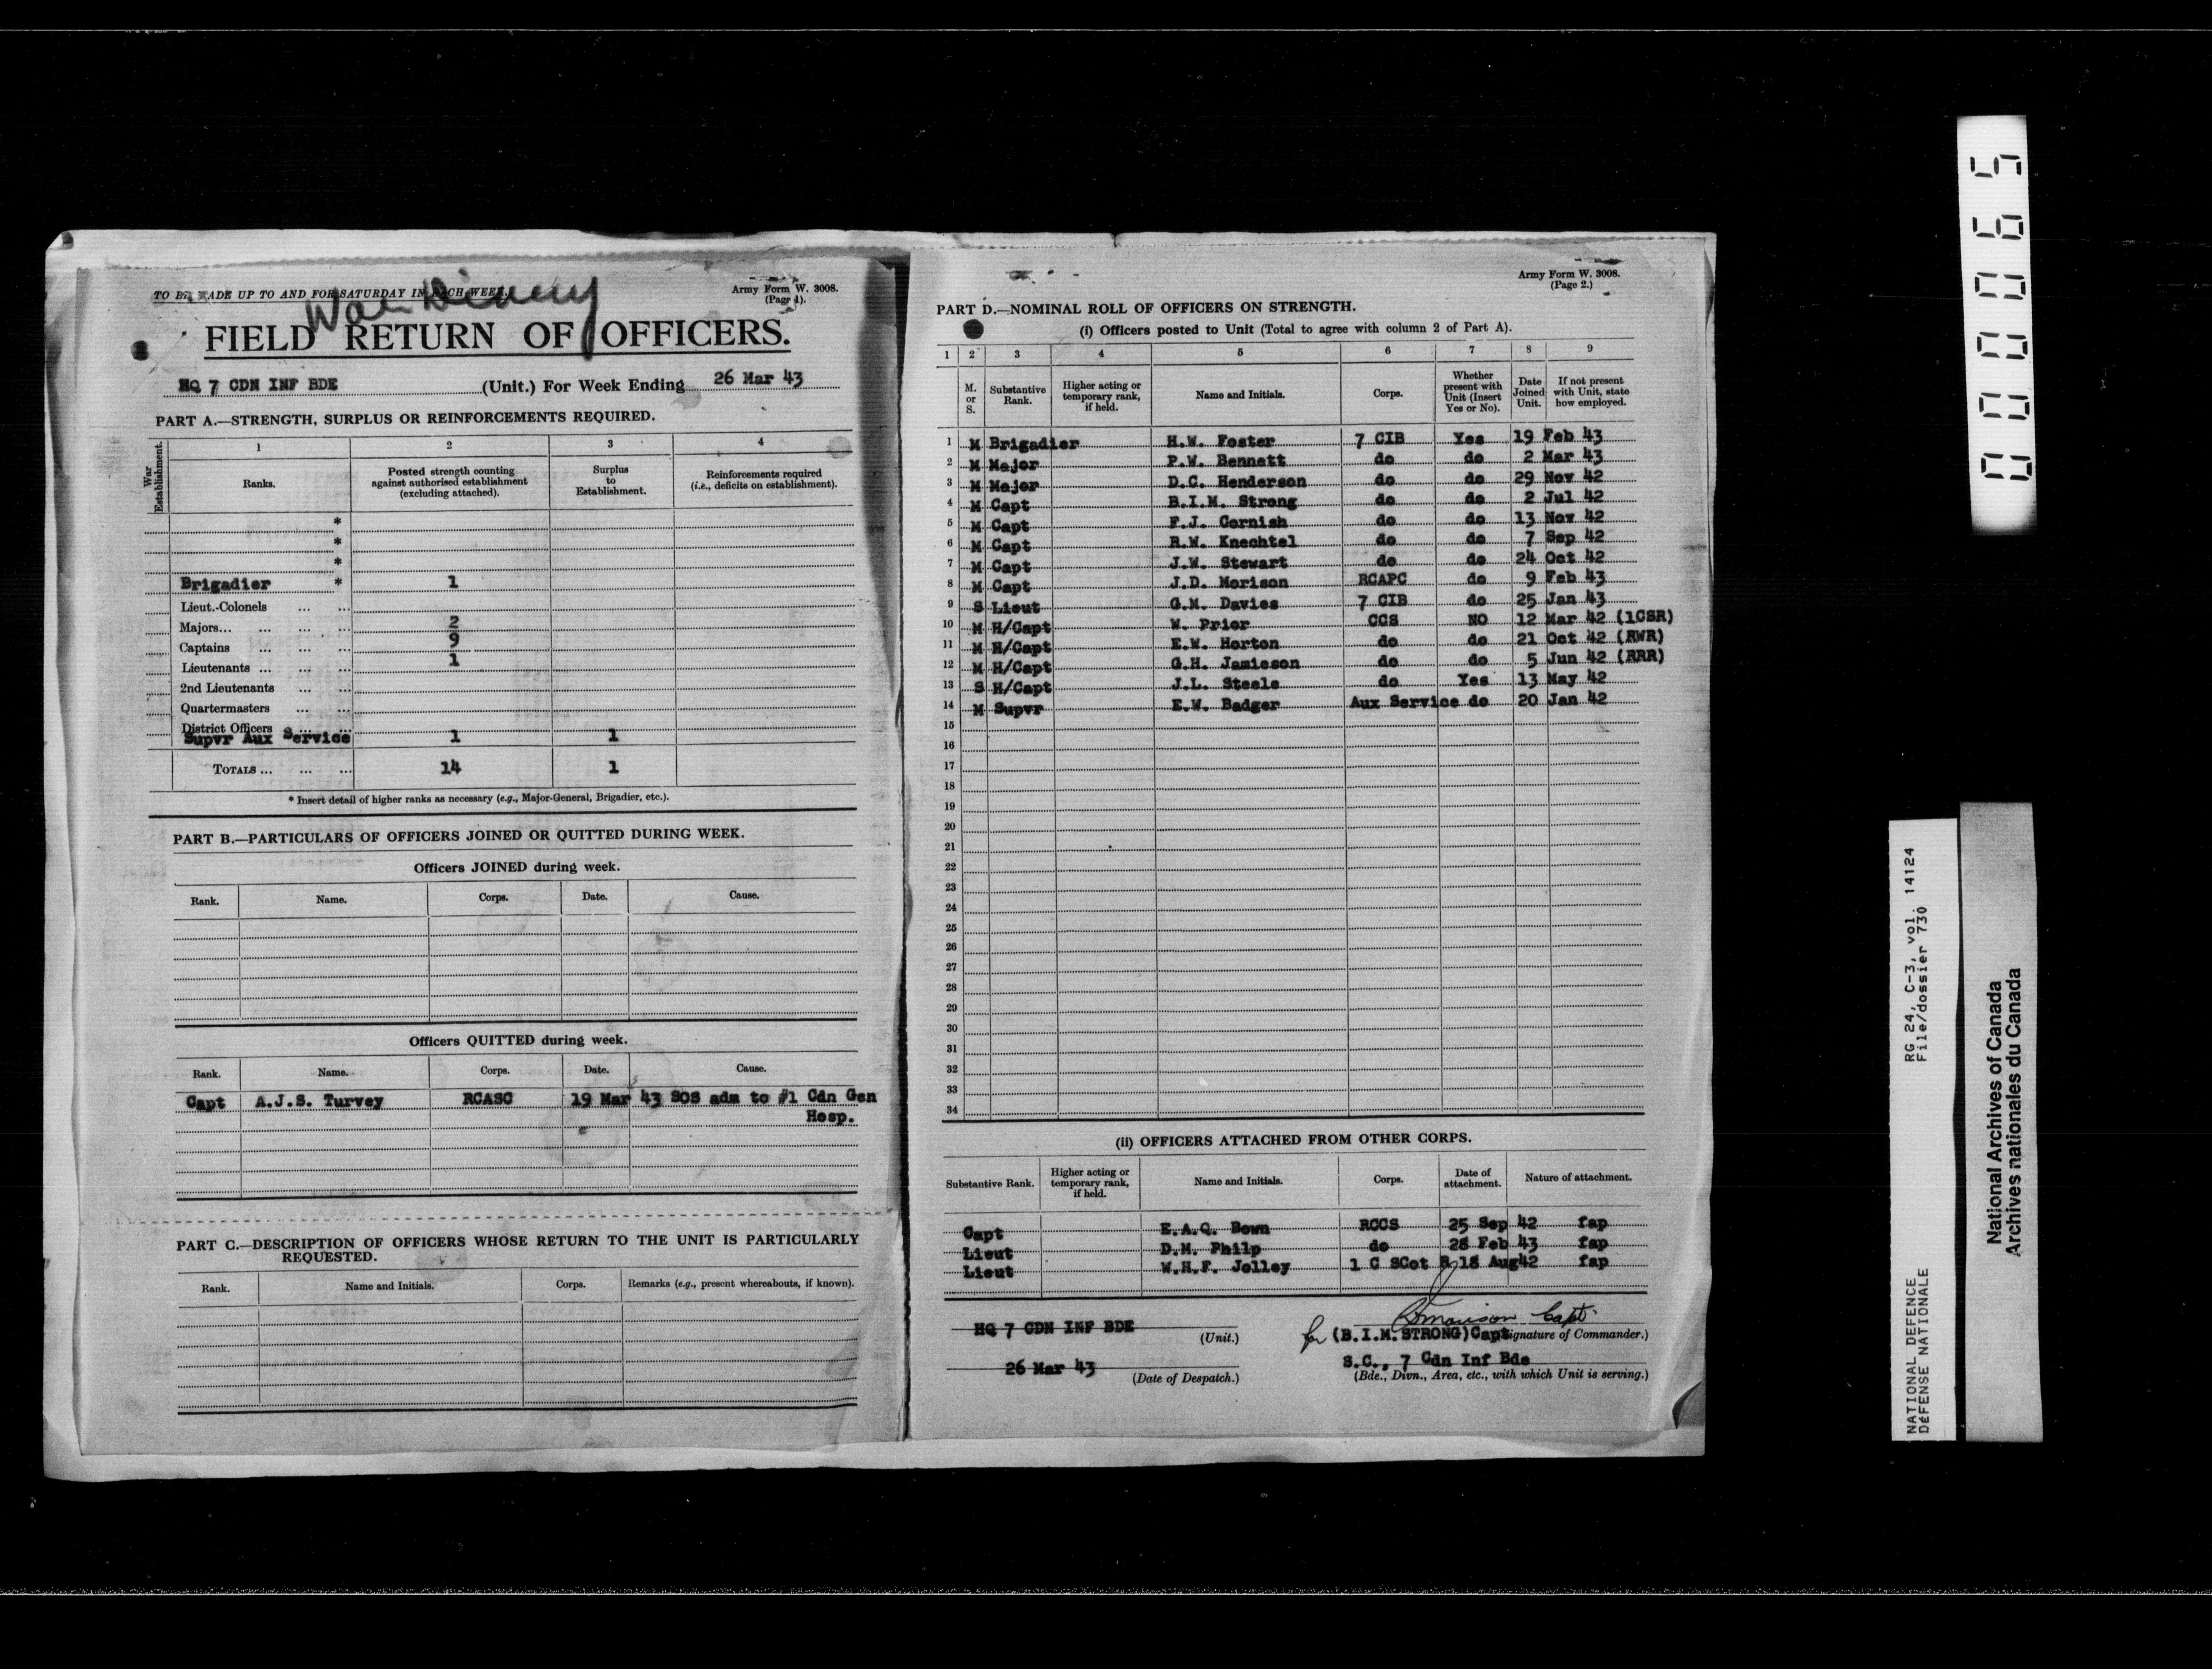 TO BE MADE UP TO AND FOR SATURDAY IN EACH WEEK.
Army Form W. 3008.
(Page 1).
War Diary
FIELD RETURN OF OFFICERS.
HQ 7 CDN INF BDE (Unit.) For Week Ending 26 Mar 43
PART A.—STRENGTH, SURPLUS OR REINFORCEMENTS REQUIRED.
War Establishment.
1 2 3 4
Ranks. Posted strength counting against authorised establishment (excluding attached). Surplus to Establishment. Reinforcements required (i.e., deficits on establishment).
*
*
*
Brigadier * 1
Lieut.-Colonels ... ...
Majors... ... ... ... 2
Captains ... ... ... 9
Lieutenants ... ... ... 1
2nd Lieutenants ... ...
Quartermasters ... ...
District Officers ... ...
Supvr Aux Service 1 1
TOTALS ... ... ... 14 1
* Insert detail of higher ranks as necessary (e.g., Major-General, Brigadier, etc.).
PART B.—PARTICULARS OF OFFICERS JOINED OR QUITTED DURING WEEK.
Officers JOINED during week.
Rank. Name. Corps. Date. Cause.
Officers QUITTED during week.
Rank. Name. Corps. Date. Cause.
Capt A.J.S. Turvey RCASC 19 Mar 43 SOS adm to #1 Cdn Gen
Hosp.
PART C.—DESCRIPTION OF OFFICERS WHOSE RETURN TO THE UNIT IS PARTICULARLY
REQUESTED.
Rank. Name and Initials. Corps. Remarks (e.g., present whereabouts, if known).
Army Form W. 3008.
(Page 2.)
PART D.—NOMINAL ROLL OF OFFICERS ON STRENGTH.
(i) Officers posted to Unit (Total to agree with column 2 of Part A).
1 2 3 4 5 6 7 8 9
M. or S. Substantive Rank. Higher acting or temporary rank, if held. Name and Initials. Corps. Whether present with Unit (Insert Yes or No). Date Joined Unit. If not present with Unit, state how employed.
1 M Brigadier H.W. Foster 7 CIB Yes 19 Feb 43
2 M Major P.W. Bennett do do 2 Mar 43
3 M Major D.C. Henderson do do 29 Nov 42
4 M Capt B.I.M. Strong do do 2 Jul 42
5 M Capt F.J. Cornish do do 13 Nov 42
6 M Capt R.W. Knechtel do do 7 Sep 42
7 M Capt J.W. Stewart do do 24 Oct 42
8 M Capt J.D. Morison RCAPC do 9 Feb 43
9 S Lieut G.M. Davies 7 CIB do 25 Jan 43
10 M H/Capt W. Prior CCS NO 12 Mar 42 (1CSR)
11 M H/Capt E.W. Horton do do 21 Oct 42 (RWR)
12 M H/Capt G.H. Jamieson do do 5 Jun 42 (RRR)
13 S H/Capt J.L. Steele do Yes 13 May 42
14 M Supvr E.W. Badger Aux Service do 20 Jan 42
15
16
17
18
19
20
21
22
23
24
25
26
27
28
29
30
31
32
33
34
(ii) OFFICERS ATTACHED FROM OTHER CORPS.
Substantive Rank. Higher acting or temporary rank, if held. Name and Initials. Corps. Date of attachment. Nature of attachment.
Capt E.A.Q. Bown RCCS 25 Sep 42 fap
Lieut D.M. Philp do 28 Feb 43 fap
Lieut W.H.F. Jolley 1 C SCot R 18 Aug42 fap
Morison Capt
HQ 7 CDN INF BDE (Unit.) for (B.I.M. STRONG) Capt (Signature of Commander.)
S.C., 7 Cdn Inf Bde
26 Mar 43 (Date of Despatch.) (Bde., Divn., Area, etc., with which Unit is serving.)
000065
RG 24, C-3, vol. 14124
File/dossier 730
NATIONAL DEFENCE
DÉFENSE NATIONALE
National Archives of Canada
Archives nationales du Canada